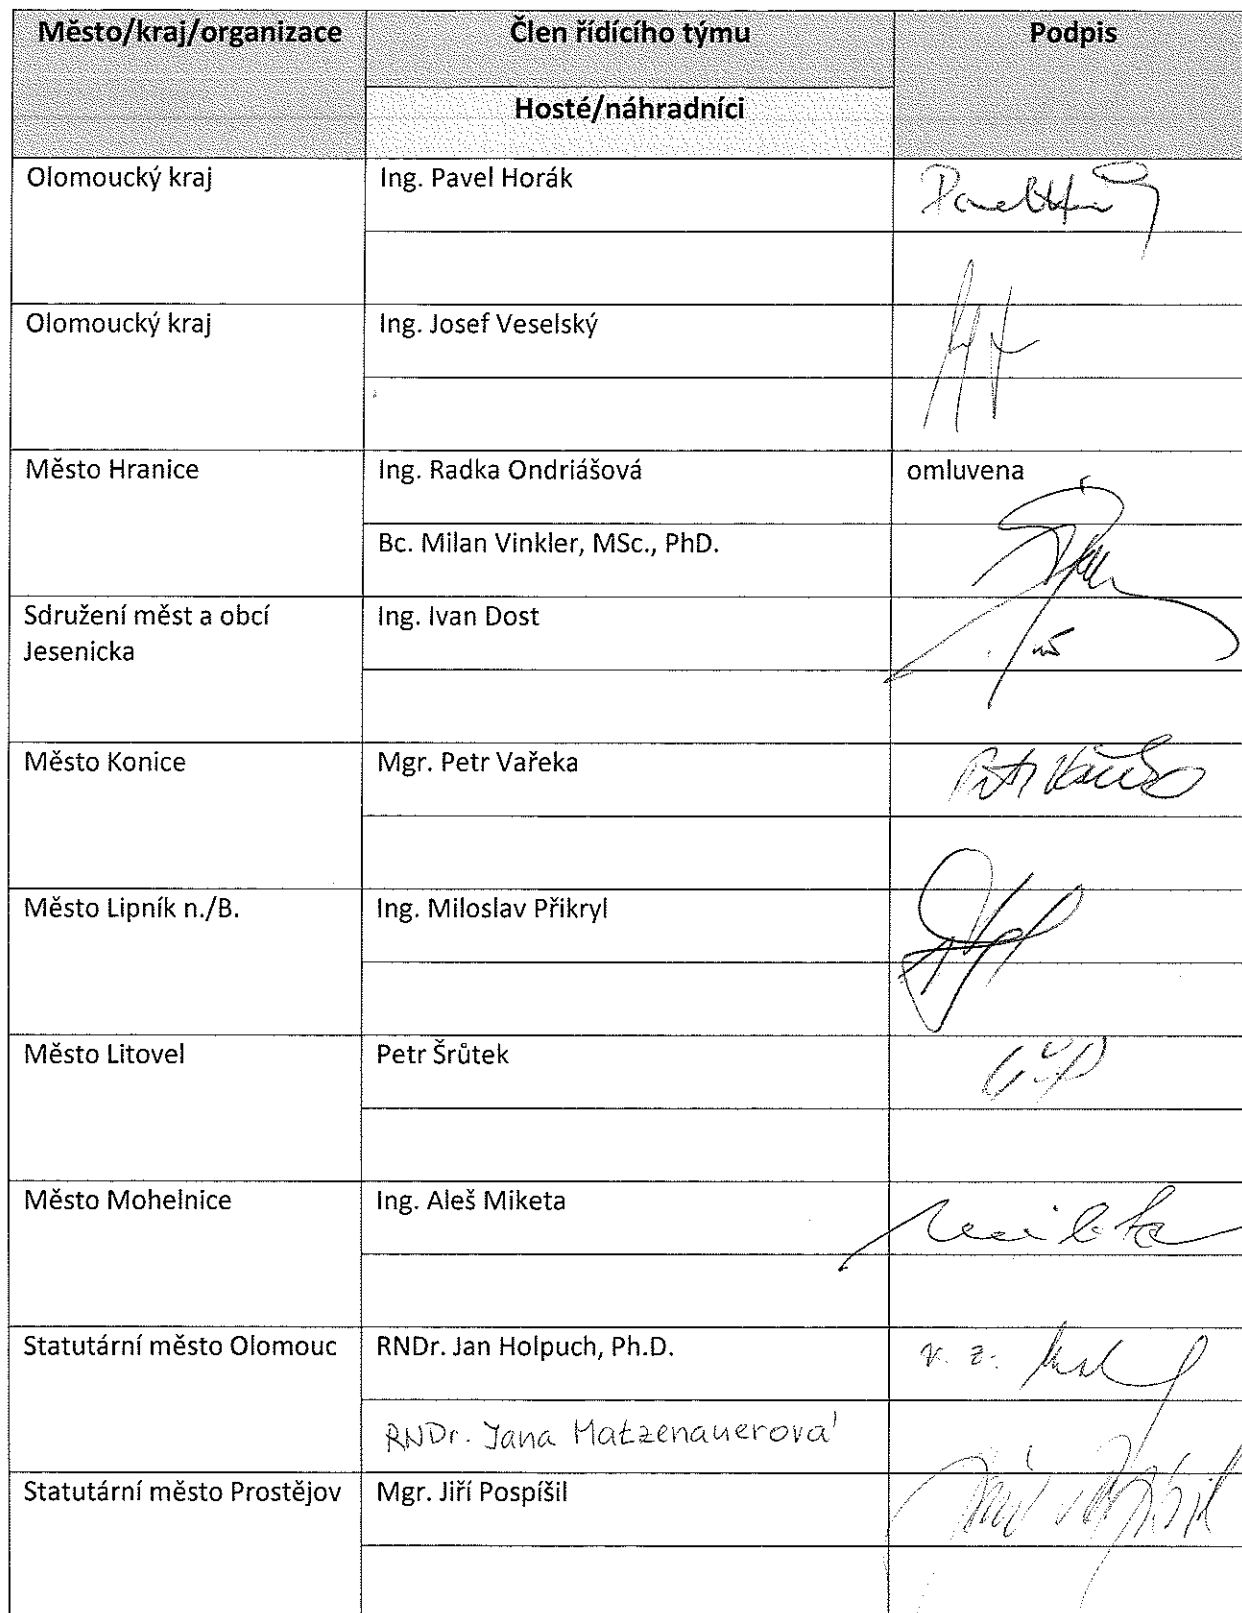 Město/kraj/organizace
Člen řídícího týmu
Podpis
Hosté/náhradníci
Olomoucký kraj
Ing. Pavel Horák
Olomoucký kraj
Ing. Josef Veselský
Město Hranice
Ing. Radka Ondriášová
omluvena
Bc. Milan Vinkler, MSc., PhD.
Sdružení měst a obcí
Jesenicka
Ing. Ivan Dost
Město Konice
Mgr. Petr Vařeka
Město Lipník n./B.
Ing. Miloslav Přikryl
Město Litovel
Petr Šrůtek
Město Mohelnice
Ing. Aleš Miketa
Statutární město Olomouc
RNDr. Jan Holpuch, Ph.D.
v. z.
RNDr. Jana Matzenauerová
Statutární město Prostějov
Mgr. Jiří Pospíšil